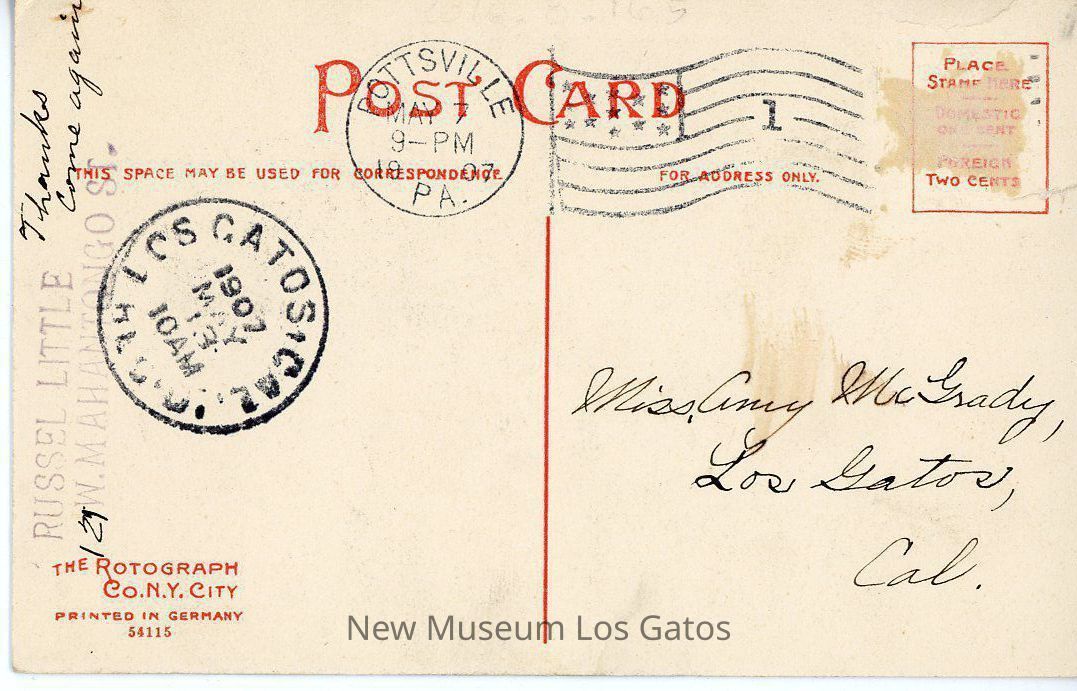 Thanks
Come again
RUSSEL LITTLE
W. MAHANTONGO ST.
POST CARD
POTTSVILLE
MAY 7
9–PM
07
PA.
1
PLACE
STAMP HERE
DOMESTIC
ONE CENT
FOREIGN
TWO CENTS
THIS SPACE MAY BE USED FOR CORRESPONDENCE
FOR ADDRESS ONLY.
LOS GATOS, CAL.
1907
MAY
13
10AM
Miss. Amy McGrady,
Los Gatos,
Cal.
THE ROTOGRAPH
CO. N.Y. CITY
PRINTED IN GERMANY
54115
New Museum Los Gatos